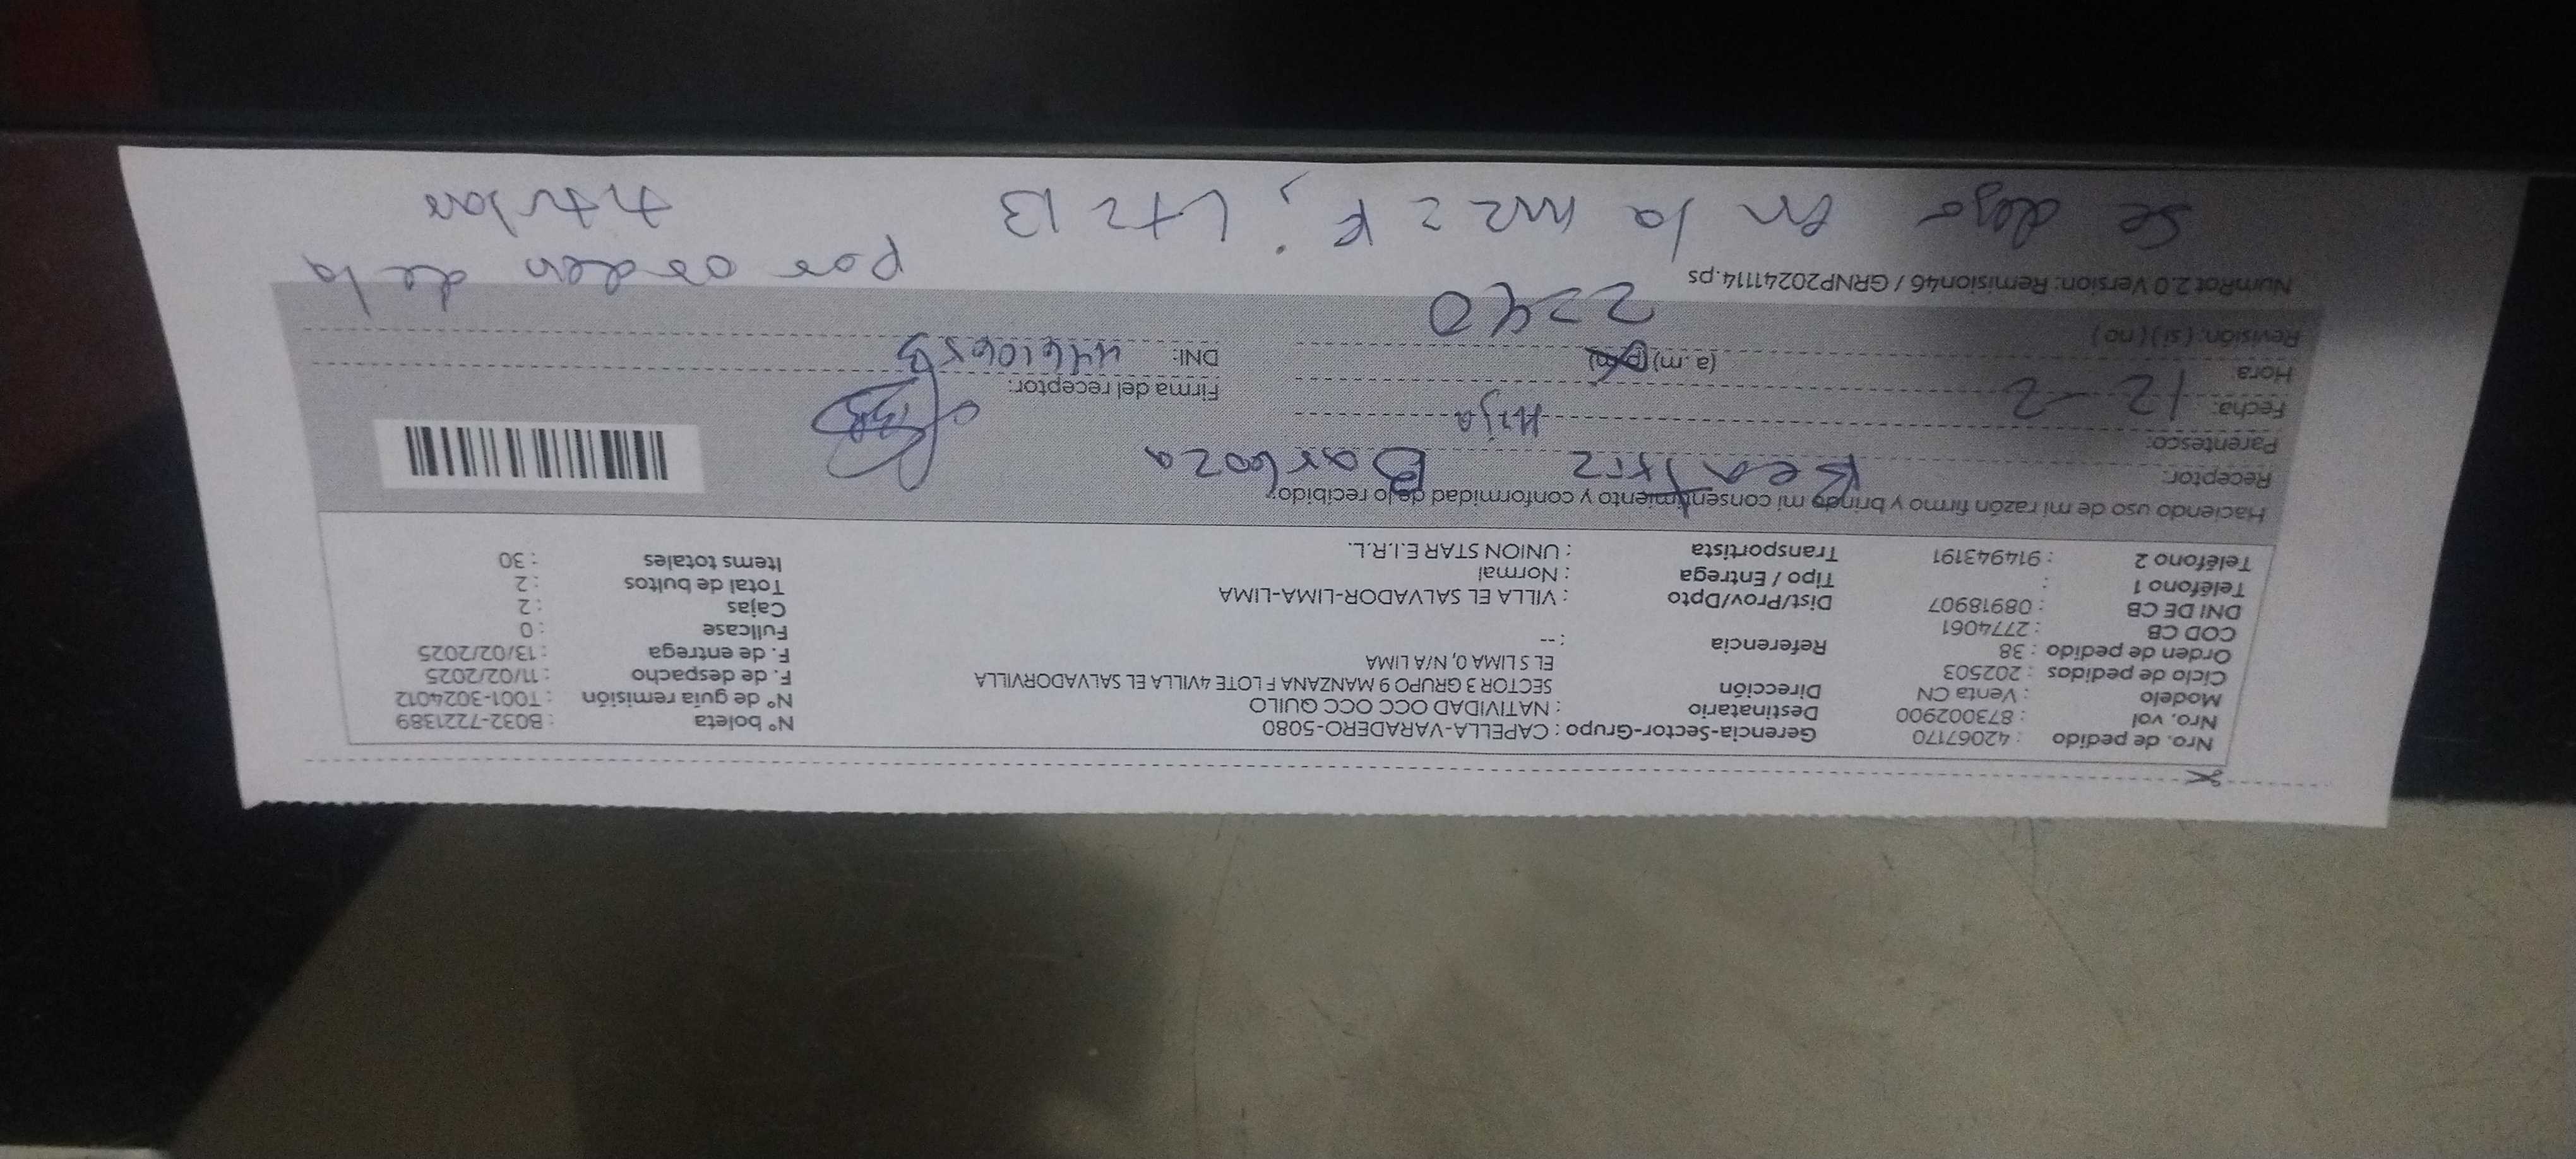 Nro. de pedido : 42067170 Gerencia-Sector-Grupo : CAPELLA-VARADERO-5080 N° boleta : B032-7221389
Nro. vol : 873002900 Destinatario : NATIVIDAD OCC OCC QUILO N° de guía remisión : T001-3024012
Modelo : Venta CN Dirección SECTOR 3 GRUPO 9 MANZANA F LOTE 4VILLA EL SALVADORVILLA F. de despacho : 11/02/2025
Ciclo de pedidos : 202503 EL S LIMA 0, N/A LIMA F. de entrega : 13/02/2025
Orden de pedido : 38 Referencia : -- Fullcase : 0
COD CB : 2774061 Cajas : 2
DNI DE CB : 08918907 Dist/Prov/Dpto : VILLA EL SALVADOR-LIMA-LIMA Total de bultos : 2
Teléfono 1 : Tipo / Entrega : Normal Items totales : 30
Teléfono 2 : 914943191 Transportista : UNION STAR E.I.R.L.
Haciendo uso de mi razón firmo y brindo mi consentimiento y conformidad de lo recibido:
Receptor: Beatriz Barboza
Parentesco: Hija
Fecha: 12-2 Firma del receptor:
Hora: (a.m) (p.m) DNI:
2240
Revisión: ( si ) ( no )
NumRot 2.0 Version: Remision46 / GRNP20241114.ps por orden de la
Se dejo en la mz = F; Lt = 13 titular